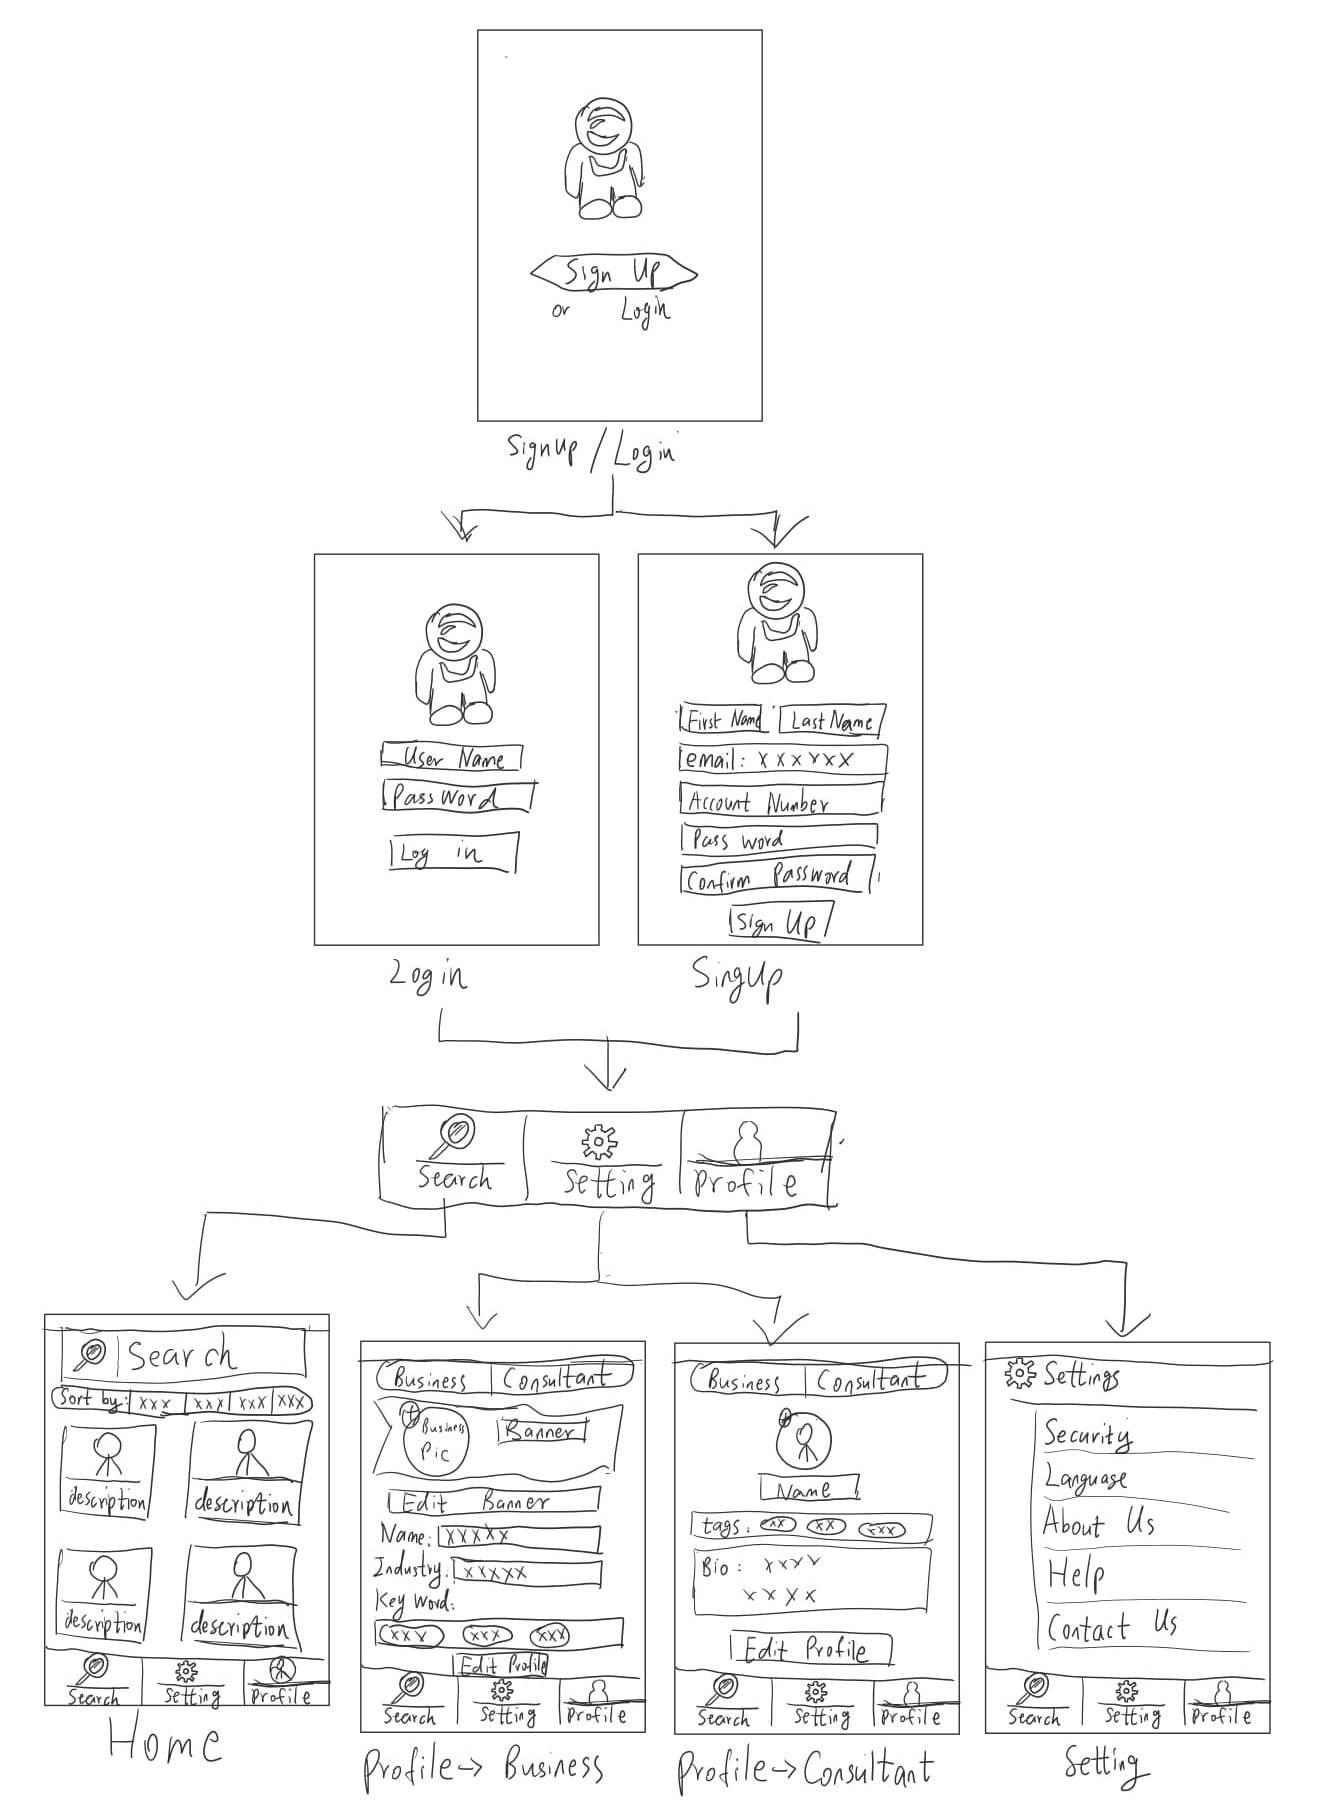 Sign Up
or Login
SignUp / Login
User Name
PassWord
Log in
Login
First Name Last Name
email: x x x x x x
Account Number
Pass word
Confirm Password
Sign Up
SingUp
Search Setting Profile
Search
Sort by: xxx xxx xxx xxx
description description
description description
Search Setting Profile
Home
Business Consultant
Business Pic
Banner
Edit Banner
Name: xxxxx
Industry: xxxxx
Key Word:
xxx xxx xxx
Edit Profile
Search Setting Profile
Profile → Business
Business Consultant
Name
tags: xx xx xxx
Bio: xxxx
xxxx
Edit Profile
Search Setting Profile
Profile → Consultant
Settings
Security
Language
About Us
Help
Contact Us
Search Setting Profile
Setting